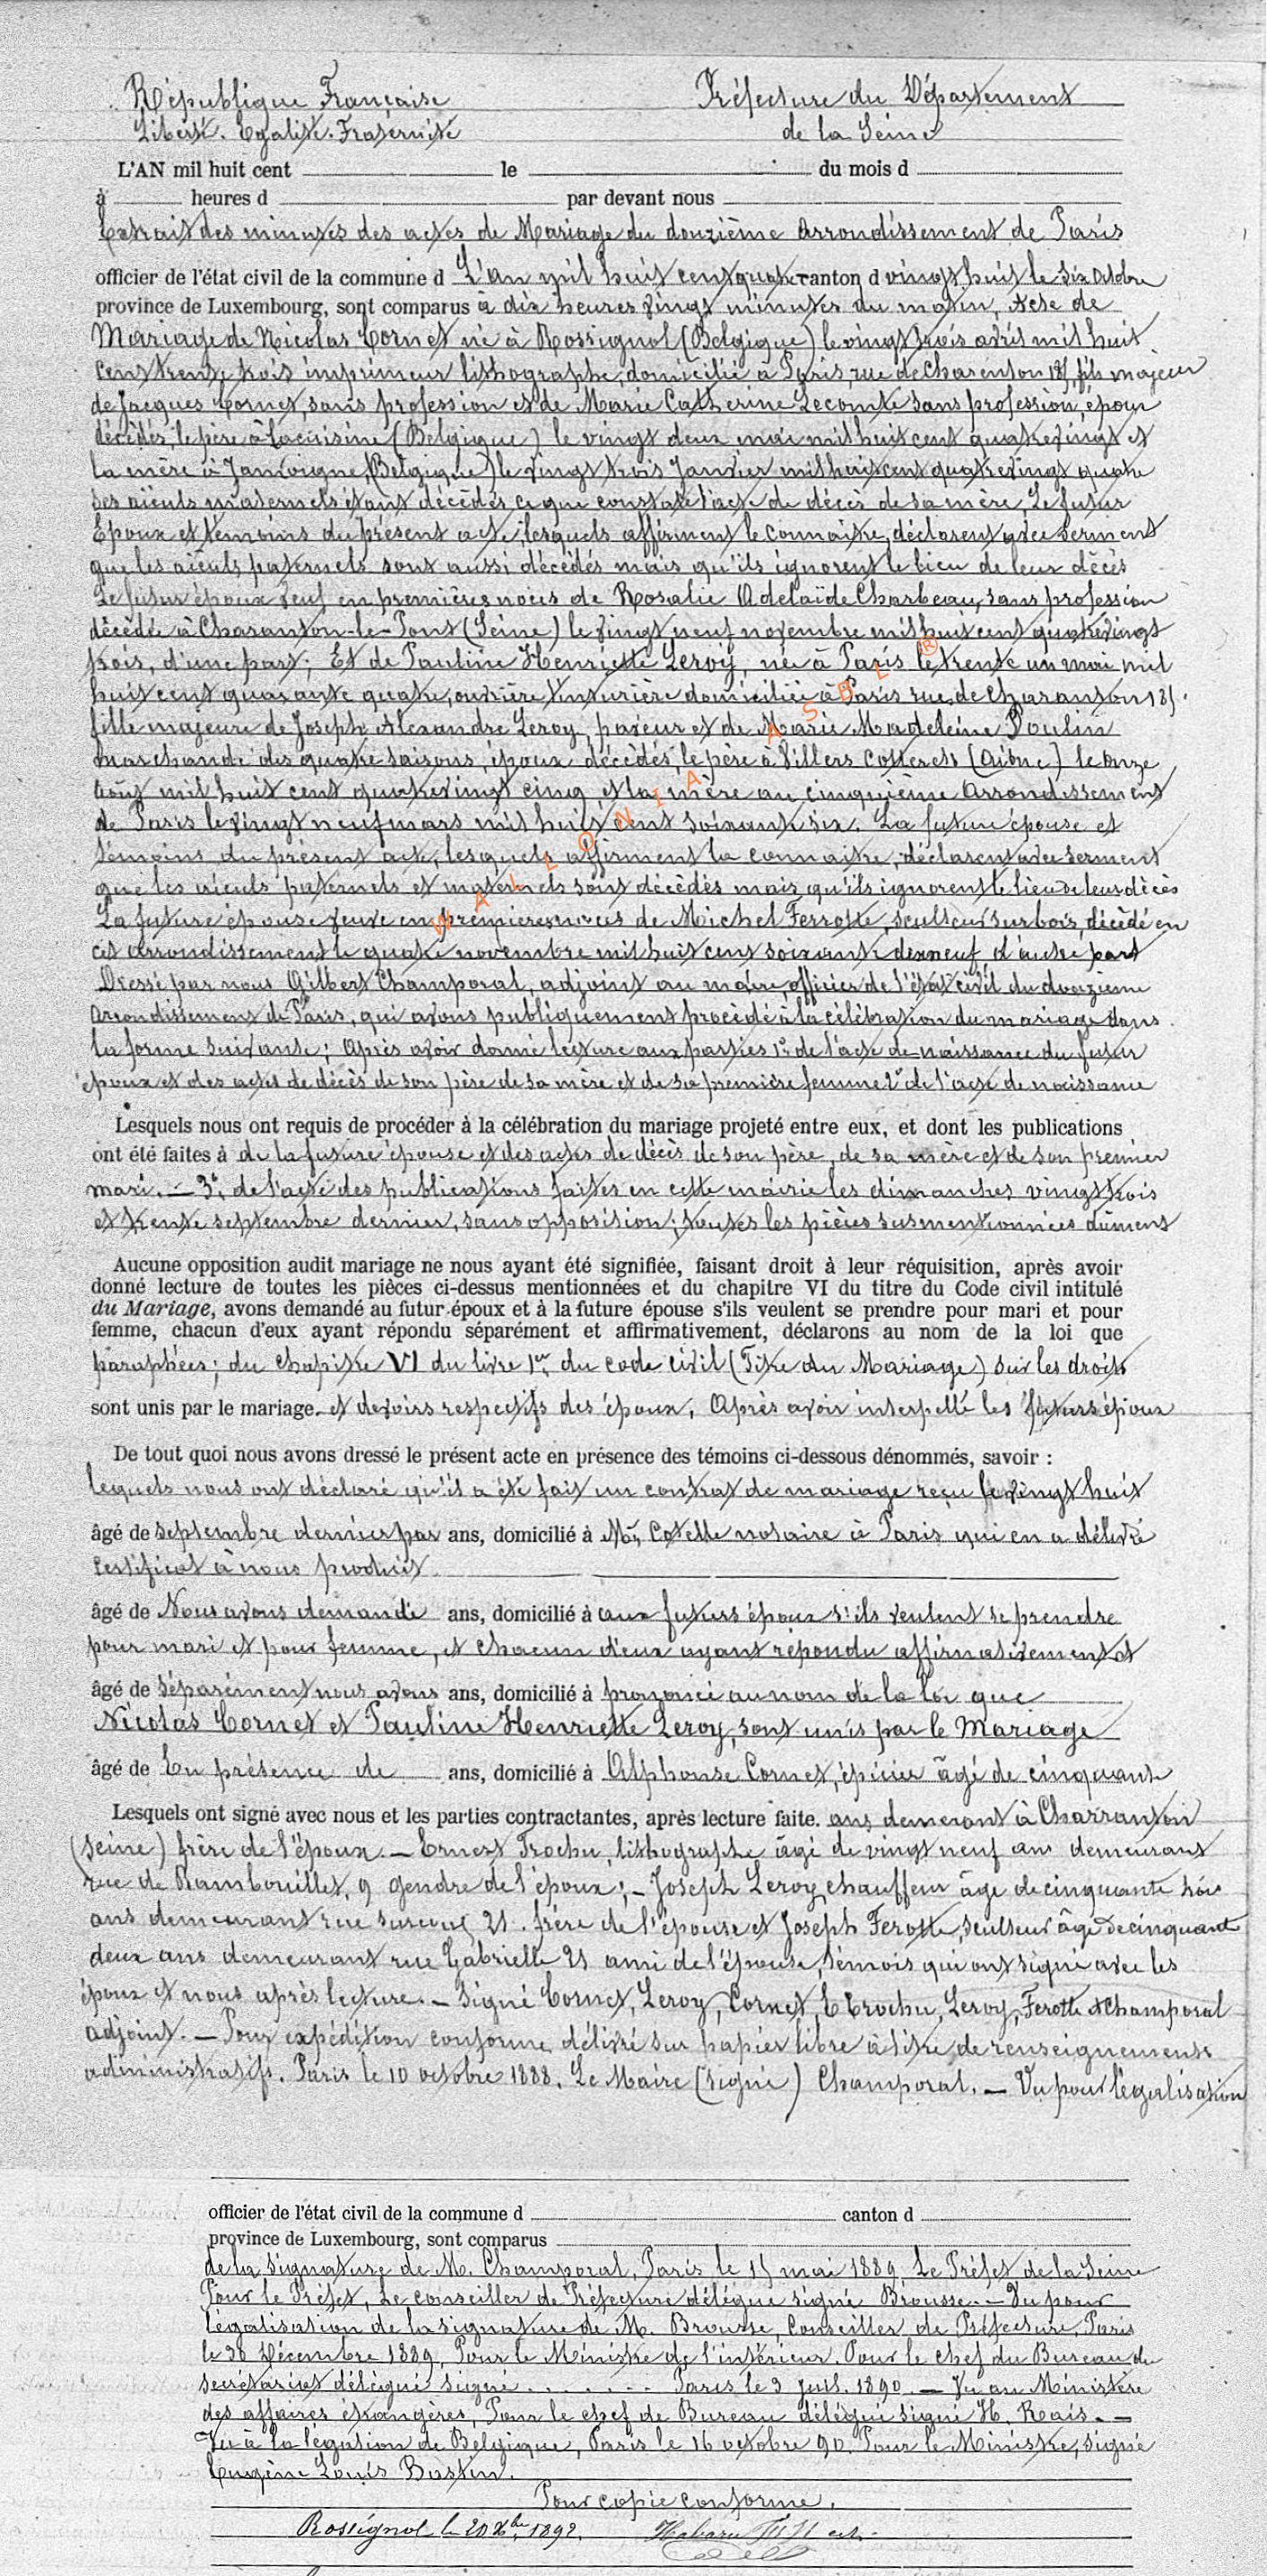 République Française Préfecture du Département
Liberté. Egalité. Fraternité de la Seine
L'AN mil huit cent le du mois d
à heures d par devant nous
Extrait des minutes des actes de Mariage du douzième Arrondissement de Paris
officier de l'état civil de la commune d L'an mil huit cent quatre canton d vingt huit le six octobre
province de Luxembourg, sont comparus à dix heures vingt minutes du matin, Acte de
Mariage de Nicolas Cornet né à Rossignol (Belgique) le vingt trois avril mil huit
cent trente trois imprimeur lithographe, domicilié à Paris, rue de Charenton 125, fils majeur
de Jacques Cornet, sans profession et de Marie Catherine Lecomte sans profession, époux
décédés, le père à Lacuisine (Belgique) le vingt deux mai mil huit cent quatrevingt et
la mère à Jamoigne, (Belgique) le vingt trois Janvier mil huit cent quatrevingt quatre
ses aïeuls maternels étant décédés ce que constate l'acte de décès de sa mère, Le futur
Epoux et témoins du présent acte, lesquels affirment le connaitre, déclarent avec serment
que les aïeuls paternels sont aussi décédés mais qu'ils ignorent le lieu de leur décès
Le futur époux veuf en premières noces de Rosalie Adelaïde Charbeau, sans profession
décédée à Charanton-le-Pont (Seine) le vingt neuf novembre mil huit cent quatrevingt
trois, d'une part; Et de Pauline Henriette Leroy, née à Paris le trente un mai mil
huit cent quarante quatre, ouvrière teinturière domiciliée à Paris rue de Charanton 125.
fille majeure de Joseph Alexandre Leroy, paveur et de Marie Madeleine Poulin
marchande des quatre saisons, époux décédés, le père à Villers Cotterets (Aisne) le onze
août mil huit cent quatrevingt cinq et la mère au cinquième Arrondissement
de Paris le vingt neuf mars mil huit cent soixante six. La future épouse et
témoins du présent acte, lesquels affirment la connaitre, déclarent avec serment
que les aïeuls paternels et maternels sont décédés mais qu'ils ignorent le lieu de leurs décès
La future épouse veuve en premières noces de Michel Ferrotte, sculteur sur bois, décédé en
cet arrondissement le quatre novembre mil huit cent soixante dix neuf, d'autre part
Dressé par nous Gilbert Champoral, adjoint au maire, officier de l'état civil du douzième
Arrondissement de Paris, qui avons publiquement procédé à la célébration du mariage dans
la forme suivante; Après avoir donné lecture aux parties 1° de l'acte de naissance du futur
époux et des actes de décès de son père de sa mère et de sa première femme 2° de l'acte de naissance
Lesquels nous ont requis de procéder à la célébration du mariage projeté entre eux, et dont les publications
ont été faites à de la future épouse et des actes de décès de son père, de sa mère et de son premier
mari. — 3°. de l'acte des publications faites en cette mairie les dimanches vingt trois
et trente septembre dernier, sans opposition; toutes les pièces susmentionnées dûment
Aucune opposition audit mariage ne nous ayant été signifiée, faisant droit à leur réquisition, après avoir
donné lecture de toutes les pièces ci-dessus mentionnées et du chapitre VI du titre du Code civil intitulé
du Mariage, avons demandé au futur époux et à la future épouse s'ils veulent se prendre pour mari et pour
femme, chacun d'eux ayant répondu séparément et affirmativement, déclarons au nom de la loi que
paraphées; du chapitre VI du livre 1er. du code civil (Titre du Mariage) sur les droits
sont unis par le mariage. et devoirs respectifs des époux. Après avoir interpellé les futurs époux
De tout quoi nous avons dressé le présent acte en présence des témoins ci-dessous dénommés, savoir :
lequels nous ont déclaré qu'il a été fait un contrat de mariage reçu le vingt huit
âgé de septembre dernier par ans, domicilié à Me. Cotelle notaire à Paris qui en a délivré
certificat à nous produit
âgé de Nous avons demandé ans, domicilié à aux futurs époux s'ils veulent se prendre
pour mari et pour femme, et chacun d'eux ayant répondu affirmativement et
âgé de séparément nous avons ans, domicilié à prononcé au nom de la loi que
Nicolas Cornet et Pauline Henriette Leroy, sont unis par le Mariage
âgé de En présence de ans, domicilié à Alphonse Cornet, épicier âgé de cinquante
Lesquels ont signé avec nous et les parties contractantes, après lecture faite. ans demerant à Charranton
(Seine) frère de l'époux. — Ernest Trochu, lithographe âgé de vingt neuf ans demeurant
rue de Rambouillet, 9 gendre de l'époux; — Joseph Leroy chauffeur âgé de cinquante trois
ans demeurant rue 21. frère de l'épouse et Joseph Ferotte, sculteur âgé de cinquante
deux ans demeurant rue Gabrielle 21 ami de l'épouse, témois qui ont signé avec les
époux et nous après lecture. — Signé Cornet, Leroy, Cornet, E Trochu, Leroy, Ferotte et Champoral
adjoint. — Pour expédition conforme délivré sur papier libre à titre de renseignements
administratifs. Paris le 10 octobre 1888. Le Maire (signé) Champoral. — Vu pour légalisation
officier de l'état civil de la commune d canton d
province de Luxembourg, sont comparus
de la signature de M. Champoral, Paris le 15 mai 1889. Le Préfet de la Seine
Pour le Préfet, Le conseiller de Préfecture délégué signé Brousse. — Vu pour
légalisation de la signature de M. Brousse, Conseiller de Préfecture. Paris
le 30 Décembre 1889. Pour le Ministre de l'intérieur. Pour le chef du Bureau du
secrétariat délégué signé . . . . . . . Paris le 3 juil. 1890. — Vu au Ministère
des affaires étrangères, Pour le chef de Bureau délégué signé H. Rais. —
Vu à la légation de Belgique, Paris le 16 octobre 90. Pour le Ministre, signé
Eugène Louis Bastin.
Pour copie conforme.
Rossignol le 20 Xbre 1892. Habaru
WALLONIA ASBL ®